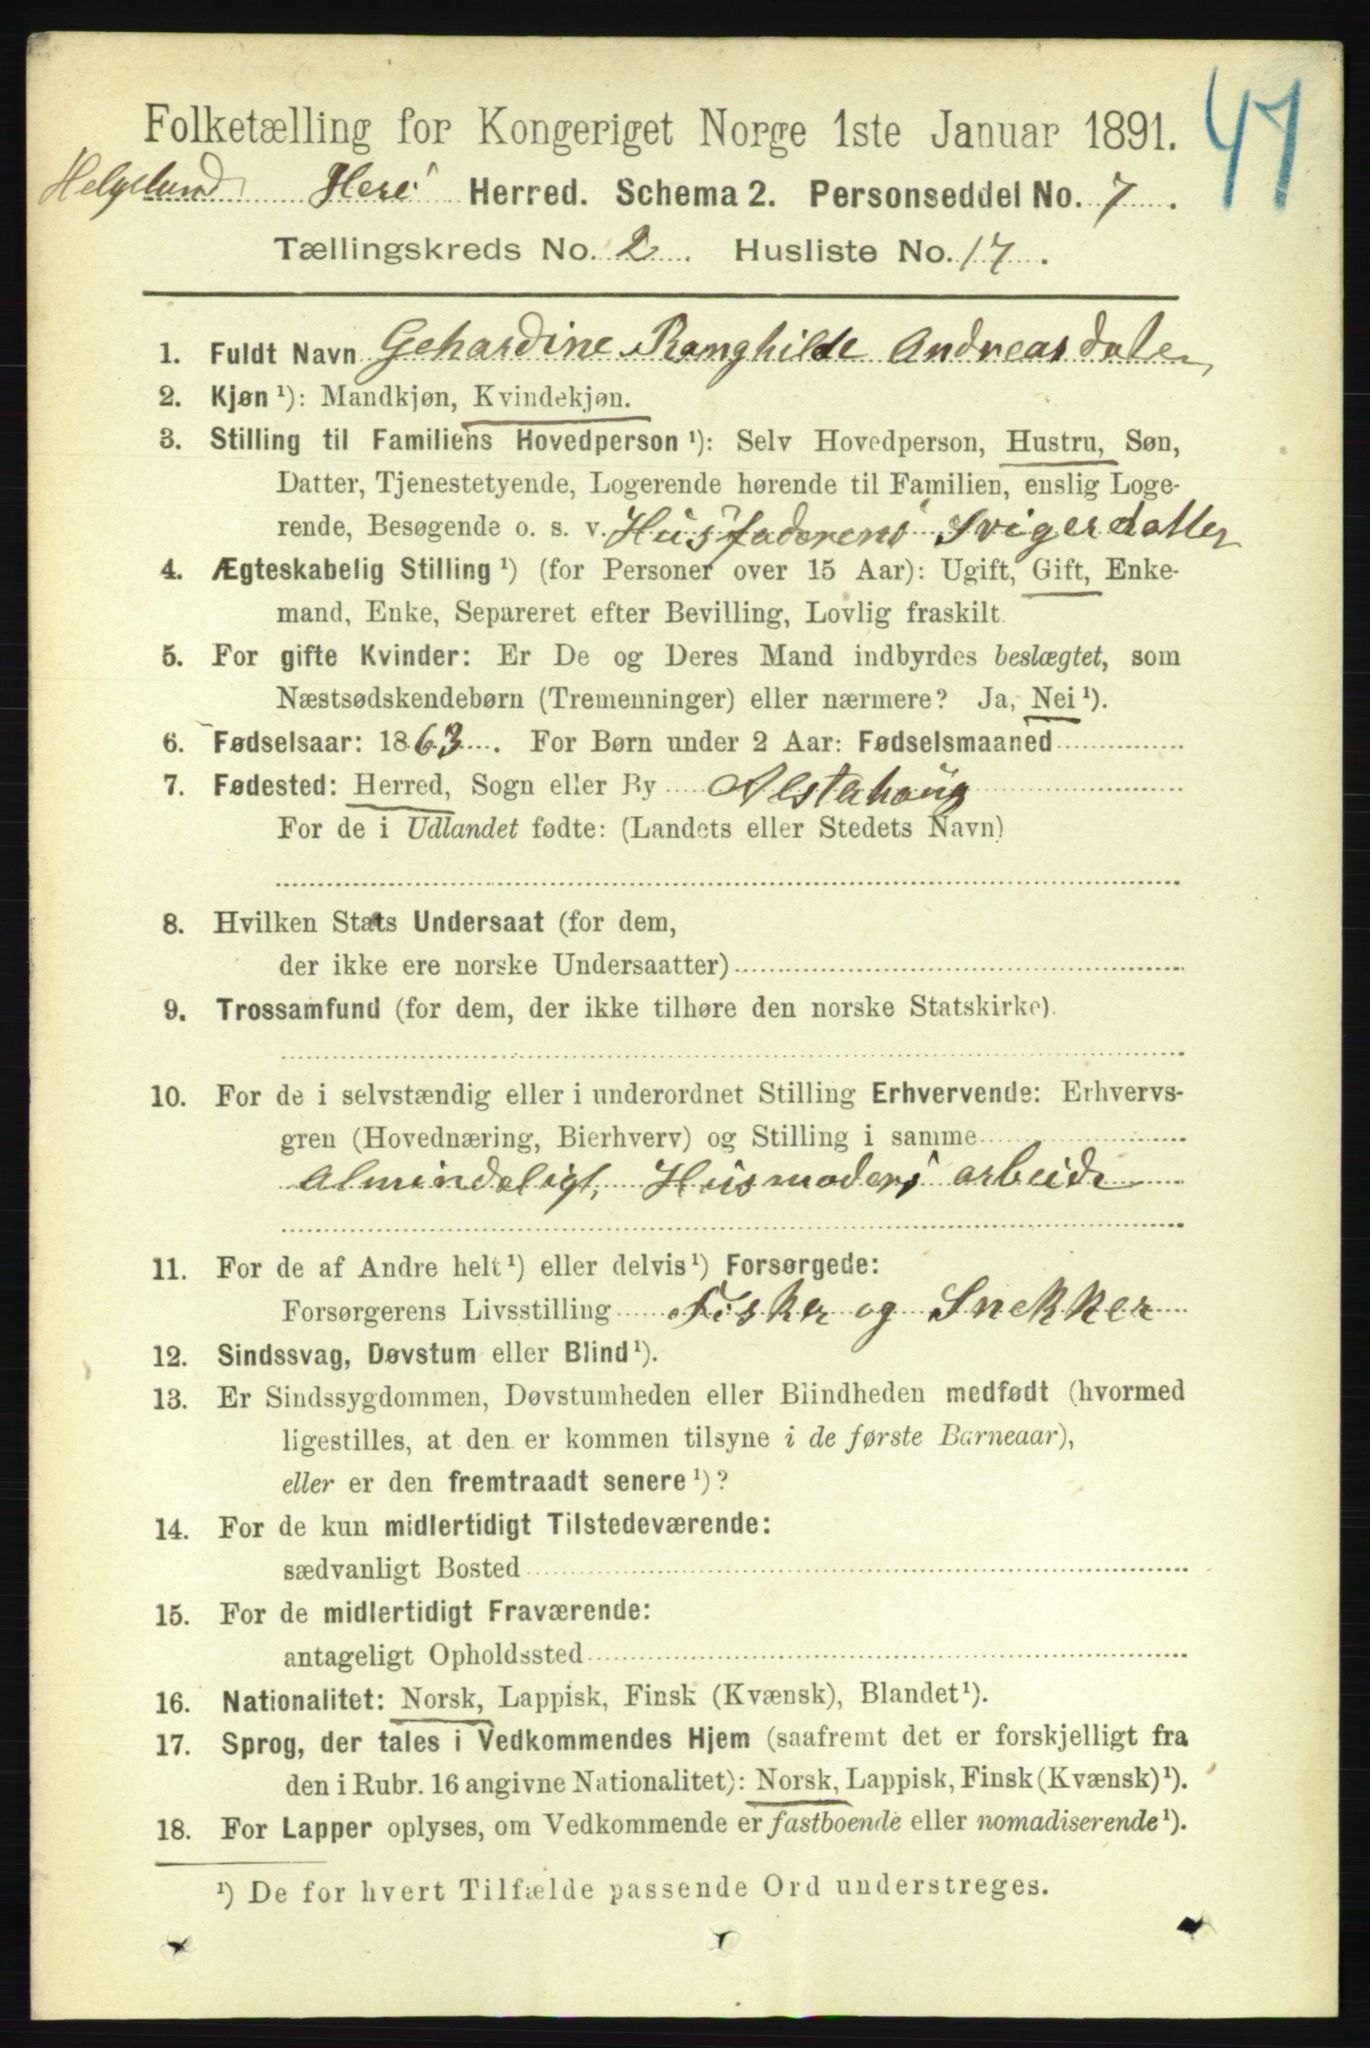 47
Folketælling for Kongeriget Norge 1ste Januar 1891.
Helgeland Herø Herred. Schema 2. Personseddel No. 7.
Tællingskreds No. 2. Husliste No. 17.
1. Fuldt Navn Gehardine Ranghilde Andreasdater
2. Kjøn ¹): Mandkjøn, Kvindekjøn.
3. Stilling til Familiens Hovedperson ¹): Selv Hovedperson, Hustru, Søn,
Datter, Tjenestetyende, Logerende hørende til Familien, enslig Loge-
rende, Besøgende o. s. v. Husfaderens Svigerdatter
4. Ægteskabelig Stilling ¹) (for Personer over 15 Aar): Ugift, Gift, Enke-
mand, Enke, Separeret efter Bevilling, Lovlig fraskilt.
5. For gifte Kvinder: Er De og Deres Mand indbyrdes beslægtet, som
Næstsødskendebørn (Tremenninger) eller nærmere? Ja, Nei ¹).
6. Fødselsaar: 1863. For Børn under 2 Aar: Fødselsmaaned
7. Fødested: Herred, Sogn eller By Alstahoug
For de i Udlandet fødte: (Landets eller Stedets Navn)
8. Hvilken Stats Undersaat (for dem,
der ikke ere norske Undersaatter)
9. Trossamfund (for dem, der ikke tilhøre den norske Statskirke).
10. For de i selvstændig eller i underordnet Stilling Erhvervende: Erhvervs-
gren (Hovednæring, Bierhverv) og Stilling i samme
Almindeligt, Husmoders arbeide
11. For de af Andre helt ¹) eller delvis ¹) Forsørgede:
Forsørgerens Livsstilling Fisker og Snekker
12. Sindssvag, Døvstum eller Blind ¹).
13. Er Sindssygdommen, Døvstumheden eller Blindheden medfødt (hvormed
ligestilles, at den er kommen tilsyne i de første Barneaar),
eller er den fremtraadt senere ¹)?
14. For de kun midlertidigt Tilstedeværende:
sædvanligt Bosted
15. For de midlertidigt Fraværende:
antageligt Opholdssted
16. Nationalitet: Norsk, Lappisk, Finsk (Kvænsk), Blandet ¹).
17. Sprog, der tales i Vedkommendes Hjem (saafremt det er forskjelligt fra
den i Rubr. 16 angivne Nationalitet): Norsk, Lappisk, Finsk (Kvænsk) ¹).
18. For Lapper oplyses, om Vedkommende er fastboende eller nomadiserende ¹).
¹) De for hvert Tilfælde passende Ord understreges.